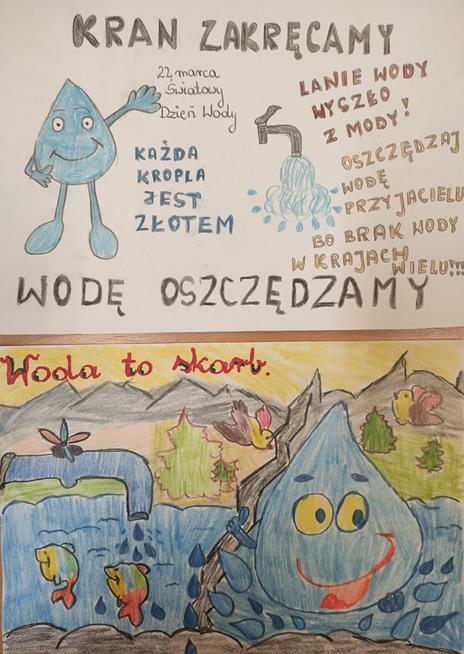 KRAN ZAKRĘCAMY
22 marca
Światowy
Dzień Wody
KAŻDA
KROPLA
JEST
ZŁOTEM
LANIE WODY
WYSZŁO
Z MODY!
OSZCZĘDZAJ
WODĘ
PRZYJACIELU
BO BRAK WODY
W KRAJACH
WIELU!!!
WODĘ OSZCZĘDZAMY
Woda to skarb.